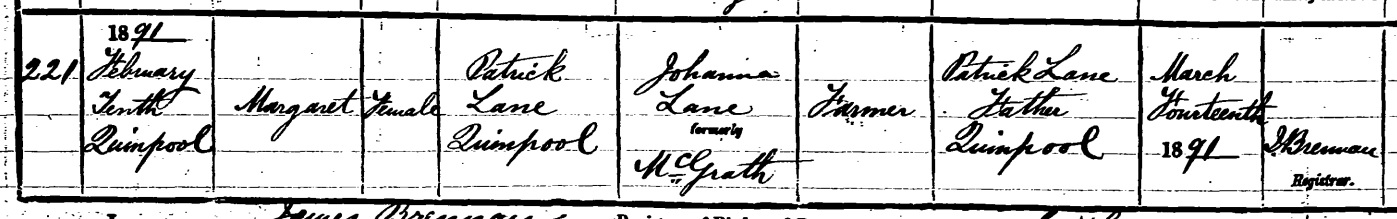 1891
221 February
Tenth
Quinpool
Margaret
Female
Patrick
Lane
Quinpool
Johanna
Lane
formerly
McGrath
Farmer
Patrick Lane
Father
Quinpool
March
Fourteenth
1891
J. Brennan
Registrar.
James Brennan